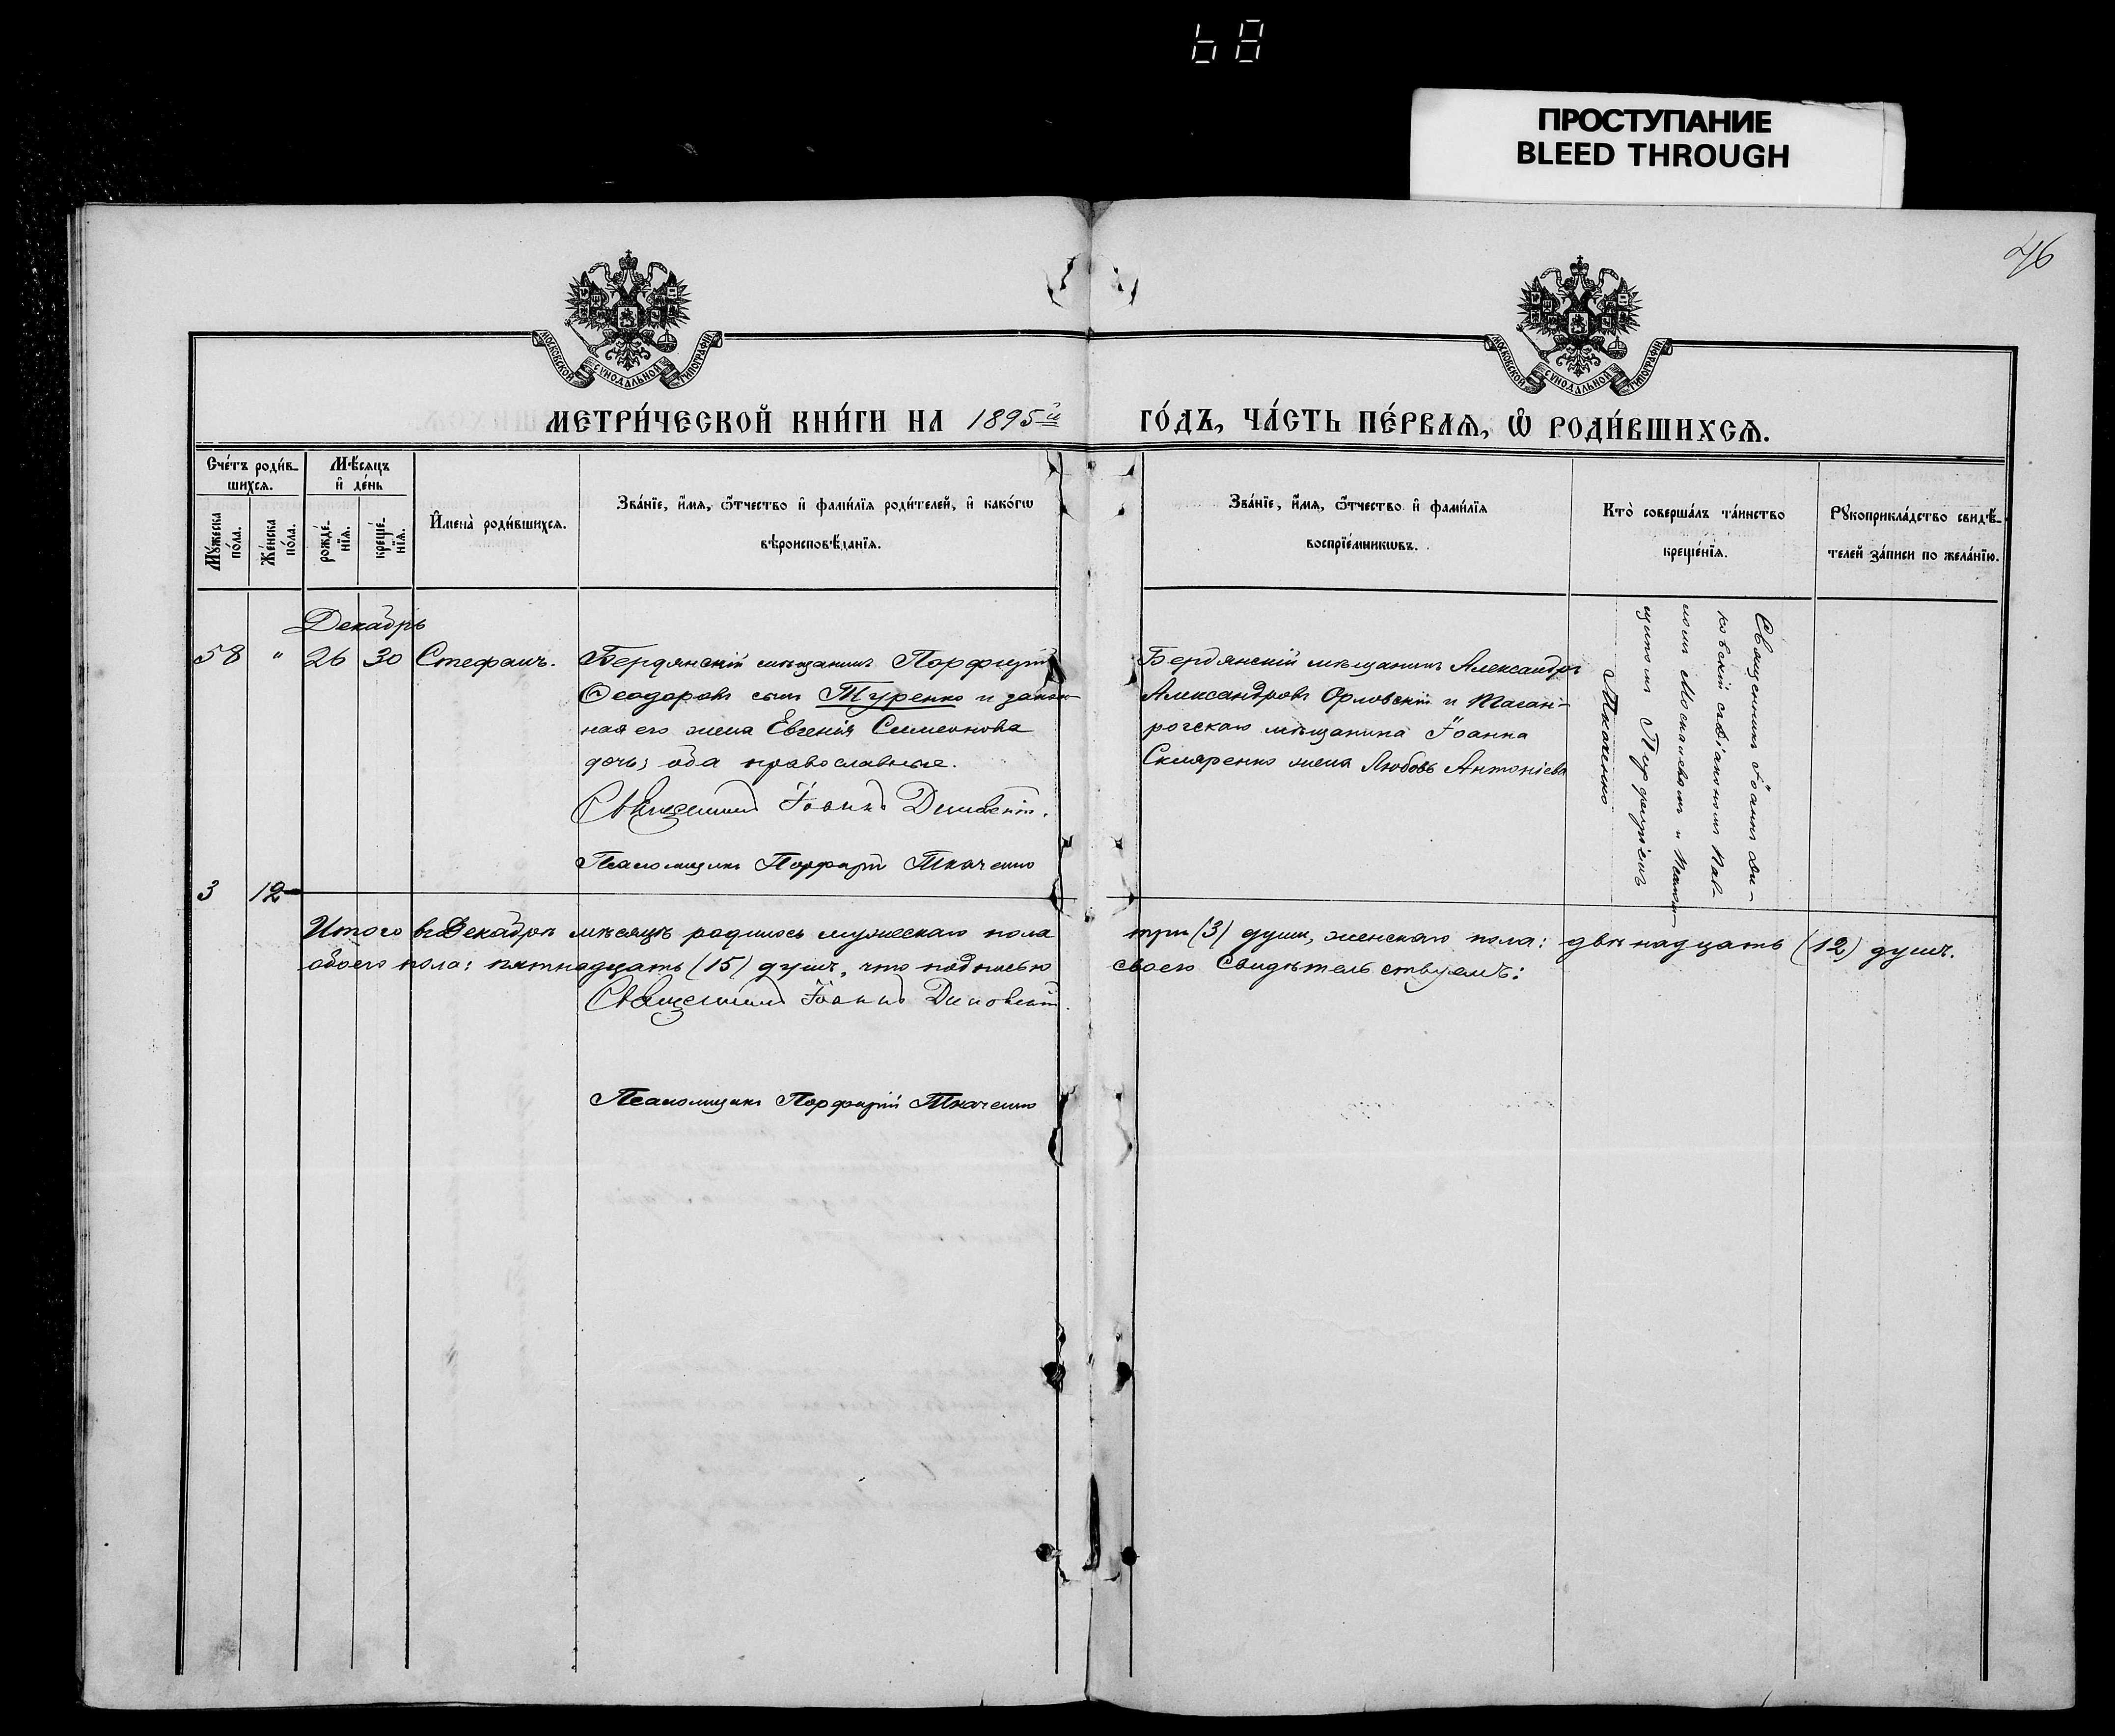 68
ПРОСТУПАНИЕ
BLEED THROUGH
46
МОСКОВСКОЙ СѴНОДАЛЬНОЙ ТИПОГРАФІИ
МОСКОВСКОЙ СѴНОДАЛЬНОЙ ТИПОГРАФІИ
МЕТРИ́ЧЕСКОЙ КНИ́ГИ НА 1895й ГО́ДЪ, ЧА́СТЬ ПЕ́РВАѦ, Ѽ РОДИ́ВШИХСѦ.
Сче́тъ роди́в-
шихсѧ.
Мꙋ́жеска
по́ла.
Же́нска
по́ла.
Мѣ́сѧцъ
и҆ де́нь
рожде́-
нїѧ.
креще́-
нїѧ.
И҆мена̀ роди́вшихсѧ.
Зва́нїе, и҆́мѧ, ѻ҆́тчество и҆ фами́лїѧ роди́телей, и҆ како́гѡ
вѣроисповѣ́данїѧ.
Зва́нїе, и҆́мѧ, ѻ҆́тчество и҆ фами́лїѧ
воспрїе́мникѡвъ.
Кто̀ соверша́лъ та́инство
креще́нїѧ.
Рꙋкоприкла́дство свидѣ́-
телей за́писи по жела́нїю.
Декабрь
58 " 26 30 Стефанъ.
Бердянскій мѣщанинъ Порфирій
Ѳеодоровъ сынъ Туренко и закон-
ная его жена Евгенія Симеонова
дочь; оба православные.
Священникъ Іоаннъ Диковскій.
Псаломщикъ Порфирій Ткаченко
Бердянскій мѣщанинъ Александръ
Александровъ Орловскій и Таган-
рогскаго мѣщанина Іоанна
Скляренко жена Любовь Антоніева
Священникъ Іоаннъ Ди-
ковскій съ діакономъ Пав-
ломъ Москалевымъ и Псалом-
щикомъ Порфиріемъ
Ткаченко
3 12
Итого въ Декабрѣ мѣсяцѣ родилось мужескаго пола три (3) души, женскаго пола: двѣнадцать (12) душъ.
обоего пола: пятнадцать (15) душъ, что подписью своею свидѣтельствуемъ:
Священникъ Іоаннъ Диковскій.
Псаломщикъ Порфирій Ткаченко